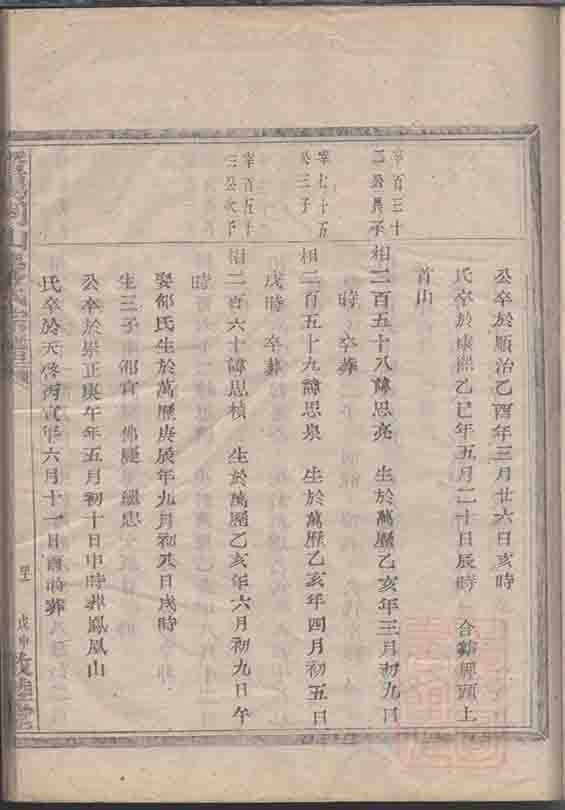 公卒於順治乙酉年三月廿六日亥時
氏卒於康熙乙巳年五月二十日辰時 合葬 頭上
首山
宰百三十
二公長子
相二百五十八諱思亮 生於萬歷乙亥年三月初九日
時 卒葬
宰七十五
公三子
相二百五十九諱思泉 生於萬歷乙亥年四月初五日
戌時 卒葬
宰百五十
三公次子
相二百六十諱思楨 生於萬歷乙亥年六月初九日午
時
娶邻氏生於萬歷庚辰年九月初八日戌時
生三子
公卒於崇正庚午年五月初十日申時葬鳳凰山
氏卒於天啓丙寅年六月十一日酉時葬
山 氏宗譜
戊申 堂